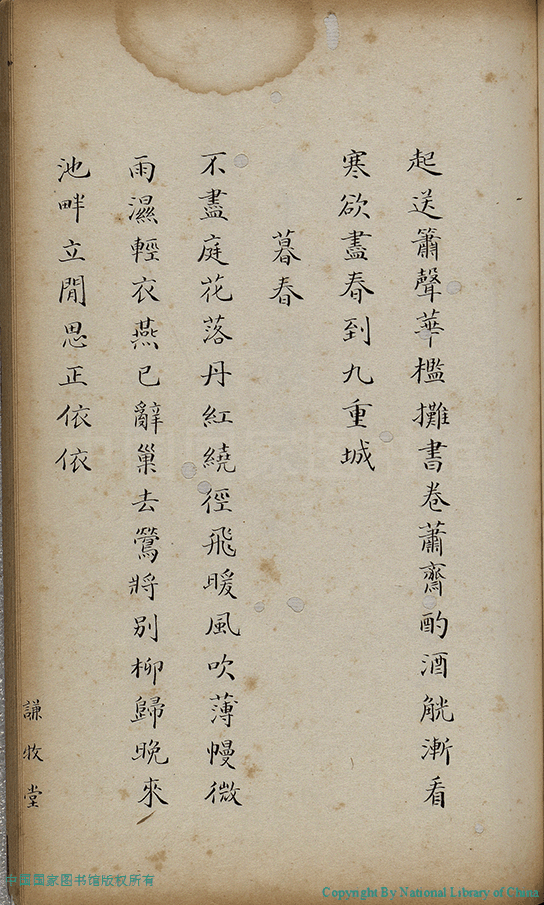 起送簫聲華檻攤書卷蕭齋酌酒觥漸看
寒欲盡春到九重城
暮春
不盡庭花落丹紅繞徑飛暖風吹薄幔微
雨濕輕衣燕已辭巢去鶯將别柳歸晚來
池畔立閒思正依依
謙牧堂
中国国家图书馆版权所有
Copyright By National Library of China